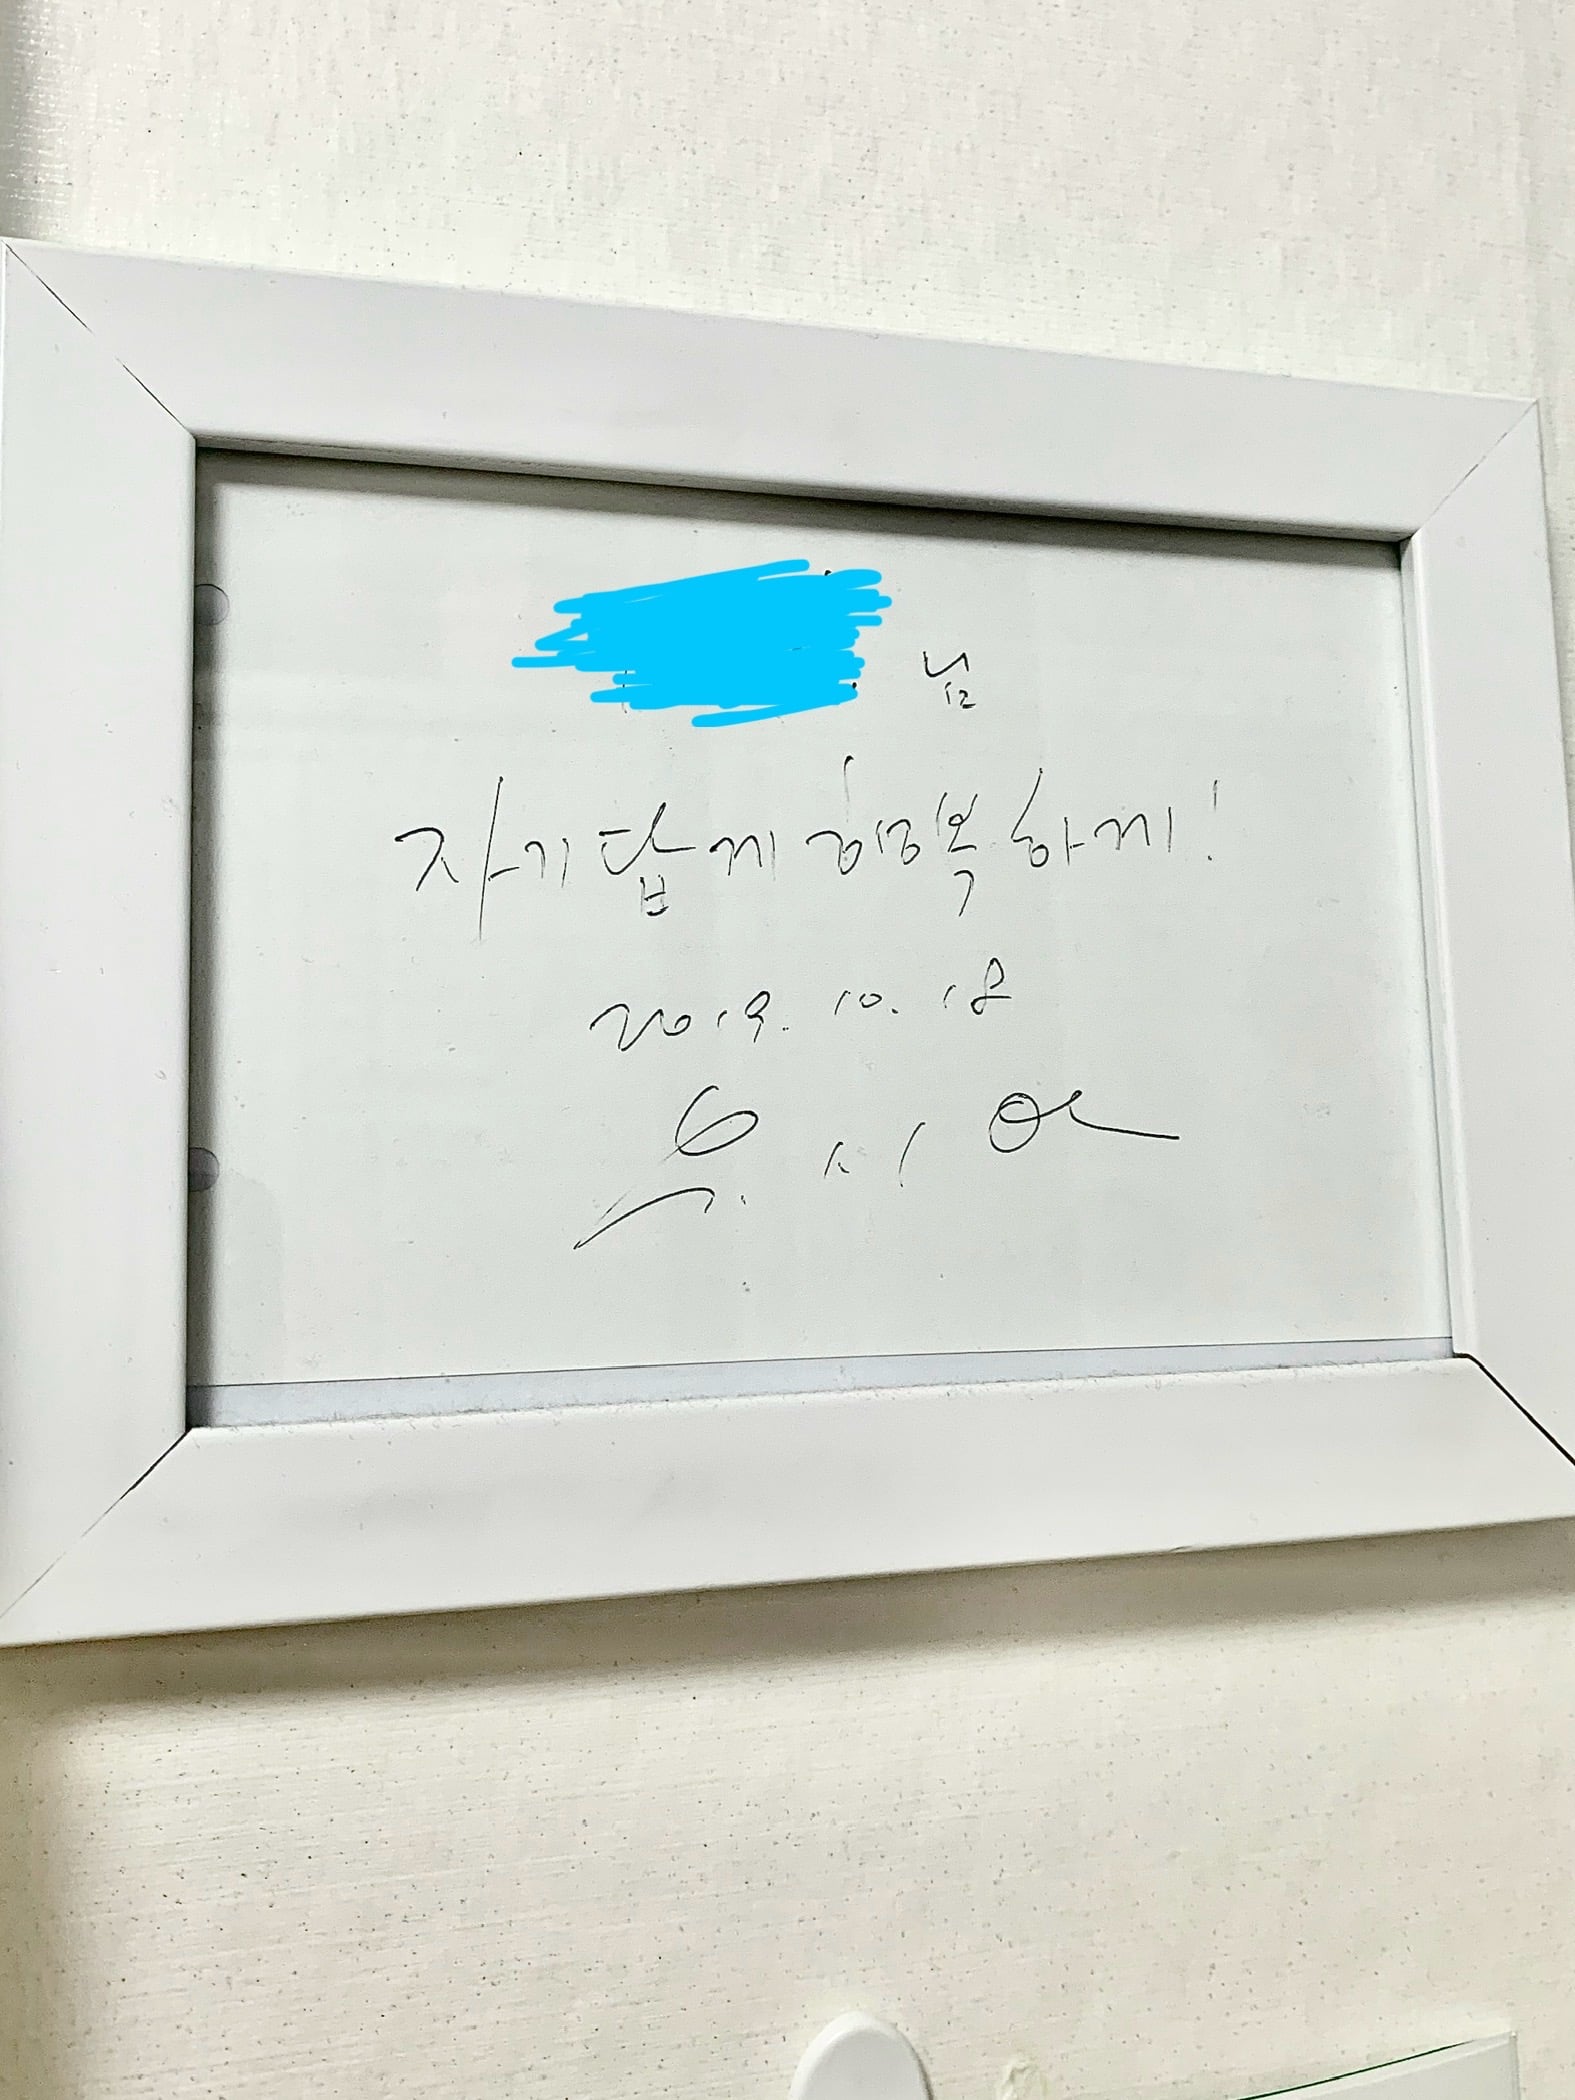 님
자기답게 행복하게!
2019. 10. 18
유시민